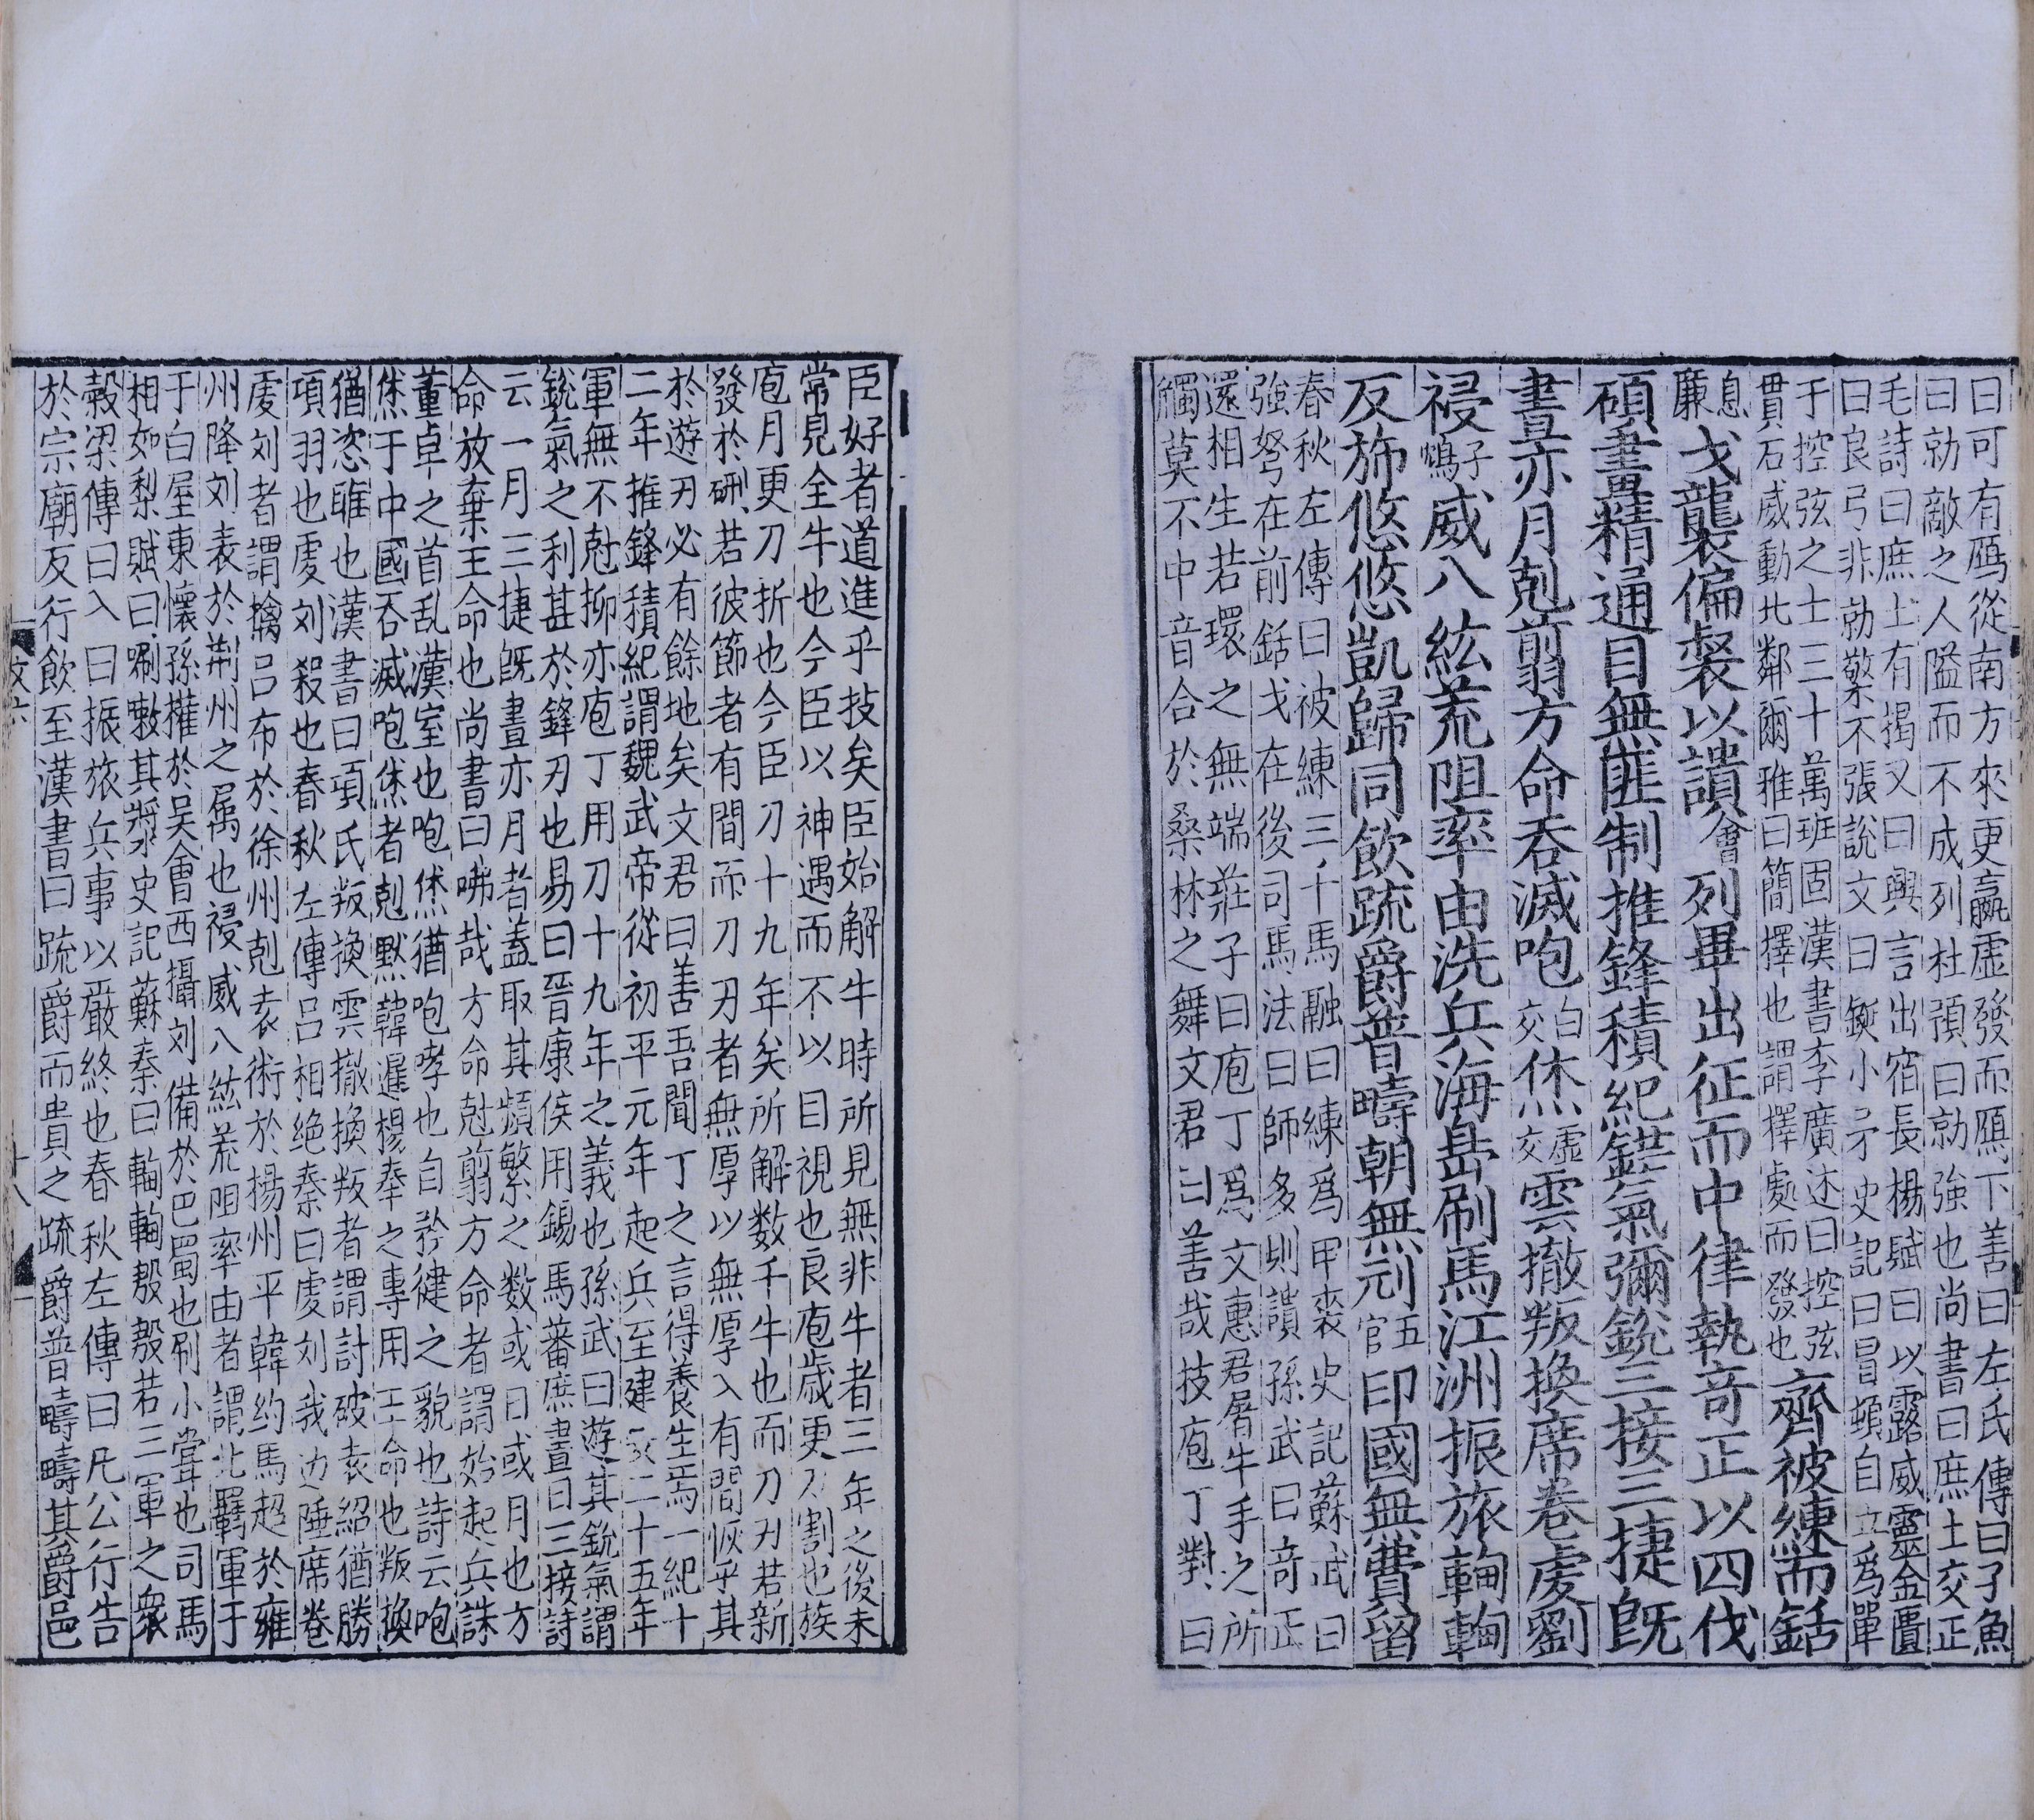 曰可有鴈從南方來更羸虛發而鴈下善曰左氏傳曰子魚
曰勍敵之人隘而不成列杜預曰勍強也尚書曰庶土交正
毛詩曰庶土有朅又曰興言出宿長楊賦曰以露威靈金匱
曰良弓非勍檠不張說文曰鋋小矛史記曰冒頓自立爲單
于控弦之士三十萬班固漢書李廣述曰控弦
貫石威動北鄰爾雅曰簡擇也謂擇處而發也
齊被練而銛
息廉
戈襲偏裻以讃
會
列畢出征而中律執奇正以四伐
碩畫精通目無匪制推鋒積紀鋩氣彌銳三接三捷旣
晝亦月剋翦方命吞滅咆
白交
烋
虛交
雲撤叛換席卷虔劉
祲
子鴆
威八紘荒阻率由洗兵海島刷馬江洲振旅輷輷
反斾悠悠凱歸同飲疏爵普疇朝無刓
五官
印國無費留
春秋左傳曰被練三千馬融曰練爲甲裘史記蘇武曰
強弩在前銛戈在後司馬法曰師多則讃孫武曰奇正
還相生若環之無端莊子曰庖丁爲文惠君屠牛手之所
觸莫不中音合於桑林之舞文君曰善哉技庖丁對曰
臣好者道進乎技矣臣始解牛時所見無非牛者三年之後未
常見全牛也今臣以神遇而不以目視也良庖歲更刀割也族
庖月更刀折也今臣刀十九年矣所解數千牛也而刀刃若新
發於硎若彼節者有間而刀刃者無厚以無厚入有間恢乎其
於遊刃必有餘地矣文君曰善吾聞丁之言得養生焉一紀十
二年推鋒積紀謂魏武帝從初平元年起兵至建二十五年
軍無不尅抑亦庖丁用刀十九年之義也孫武曰遊其銳氣謂
銳氣之利甚於鋒刃也易曰晉康侯用錫馬蕃庶晝日三接詩
云一月三捷旣晝亦月者蓋取其頻繁之数或日或月也方
命放棄王命也尚書曰咈哉方命尅翦方命者謂始起兵誅
董卓之首乱漢室也咆烋猶咆哮也自矜健之貌也詩云咆
烋于中國吞滅咆烋者剋黙韓暹楊奉之專用王命也叛換
猶恣睢也漢書曰項氏叛換雲撤換叛者謂討破袁紹猶勝
項羽也虔刘殺也春秋左傳吕相绝秦曰虔刘我边陲席卷
虔刘者謂擒吕布於徐州剋袁術於楊州平韓约馬超於雍
州降刘表於荆州之属也祲威八紘荒阻率由者謂北羈軍于
于白屋東懷孫權於吴會西攝刘備於巴蜀也刷小嘗也司馬
相如梨賦曰唰嗽其漿史記蘇秦曰輷輷殷殷若三軍之衆
榖梁傳曰入曰振旅兵事以嚴終也春秋左傳曰凡公行告
於宗廟反行飲至漢書曰疏爵而貴之疏爵普疇疇其爵邑
文六
十八